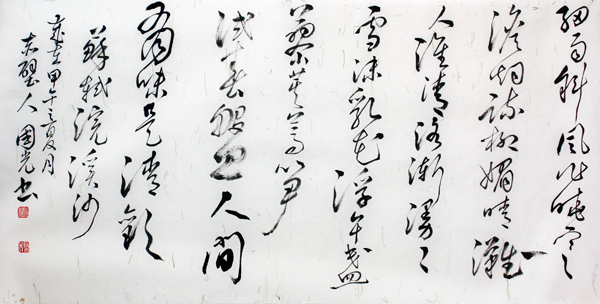 細雨斜風作曉寒
澹烟疏柳媚晴灘
入淮清洛漸漫〻
雪沫乳花浮午盞
蓼茸蒿笋
試春盤人間
有味是清歡
蘇軾浣溪沙
歲在甲午夏月
赤壁人國光书